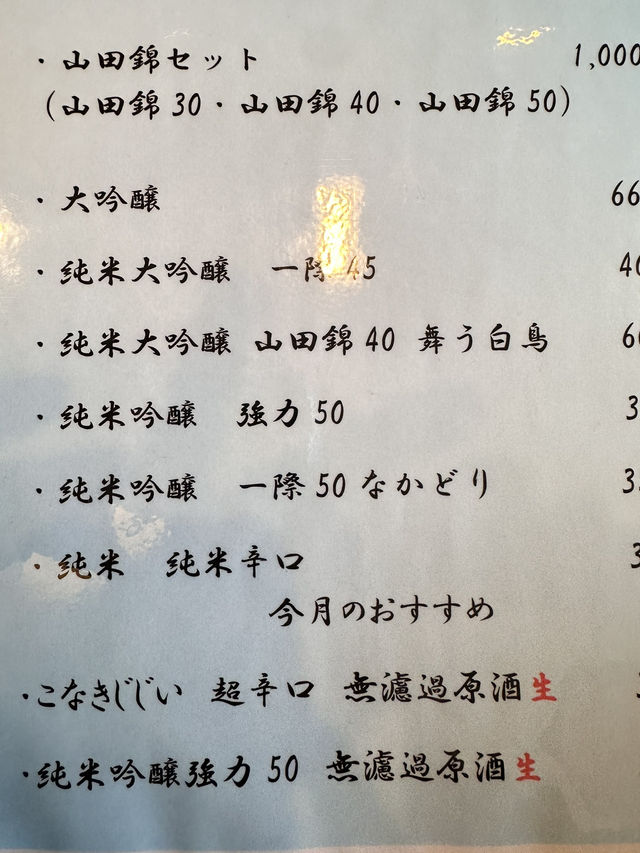 ・山田錦セット 1,000
（山田錦30・山田錦40・山田錦50）
・大吟醸 66
・純米大吟醸 一際45
・純米大吟醸 山田錦40 舞う白鳥
・純米吟醸 強力50 3
・純米吟醸 一際50なかどり 3
・純米 純米辛口 3
今月のおすすめ
・こなきじじい 超辛口 無濾過原酒生
・純米吟醸強力50 無濾過原酒生